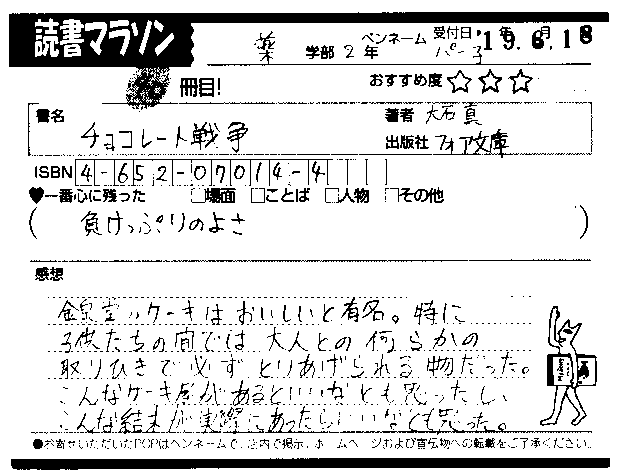 読書マラソン 薬 学部 2 年 ペンネーム パー子 受付日 '19.6.18
冊目! おすすめ度 ☆☆☆
書名 チョコレート戦争 著者 大石真
出版社 フォア文庫
ISBN 4-652-07014-4
♥一番心に残った □場面 □ことば □人物 □その他
( 負けっぷりのよさ )
感想
金泉堂のケーキはおいしいと有名。特に
子供たちの間では大人との何らかの
取りひきで必ずとりあげられる物だった。
こんなケーキ屋があるといいなとも思ったし、
こんな結末が実際にあったらいいなとも思った。
●お寄せいただいたPOPはペンネームで、店内で掲示、ホームページおよび宣伝物への転載をご了承ください。